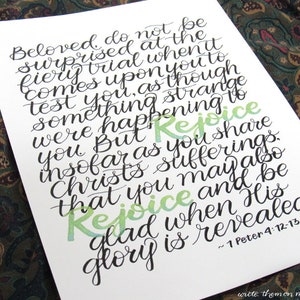 Beloved, do not be
surprised at the
fiery trial when it
comes upon you to
test you, as though
something strange
were happening to
you. But Rejoice
insofar as you share
Christ's sufferings,
that you may also
Rejoice and be
glad when His
glory is revealed.
~ 1 Peter 4:12-13
write them on m